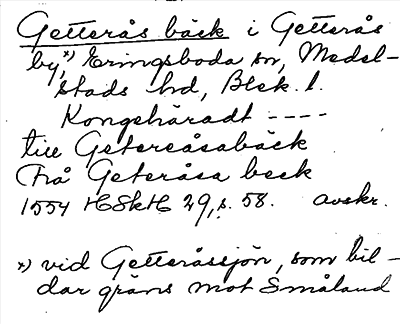 Getterås bäck i Getterås
by,*) Eringsboda sn, Medel-
stads hd, Blek. l.
Kongshäradt ----
till Getereåsabäck
(Frå Geteråsa beck
1554 HSkH 29, s. 58. avskr.
*) vid Getteråssjön, som bil-
dar gräns mot Småland